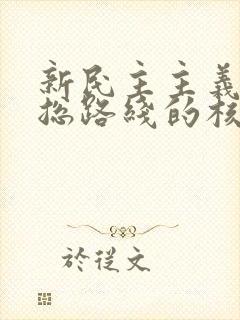 新民主主義
总路线的核
於從文